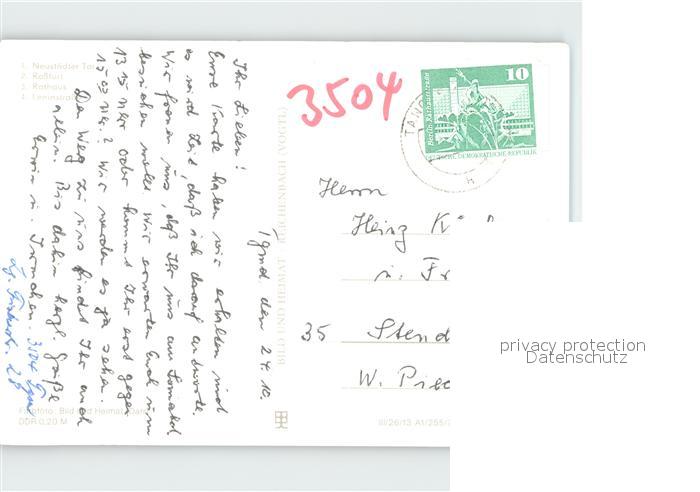 1. Neustädter Tor
2. Roßfurt
3. Rathaus
4. Leninstraße
Tgmd. den 24.10.
Ihr Lieben!
Eure Karte haben wir erhalten und
es wird Zeit, daß ich darauf antworte.
Wir freuen uns, daß Ihr uns am Sonnabd
besuchen wollt. Wir erwarten Euch um
13 15 Uhr oder kommt Ihr erst gegen
15 03 Uhr? Wir werden es ja sehen.
Den Weg zu uns findet Ihr auch
allein. Bis dahin herzl. Grüße
Erwin u. Irmchen.
3504 Tgm
Farbfoto: Bild und Heimat
DDR 0,20 M
BILD UND HEIMAT REICHENBACH (VOGTL)
III/26/13 A1/255/
3504
10
Berlin, Rathausstraße
DEUTSCHE DEMOKRATISCHE REPUBLIK
TANG
Herrn
Heinz
u. Fr
35 Stend
W. Piec
privacy protection
Datenschutz